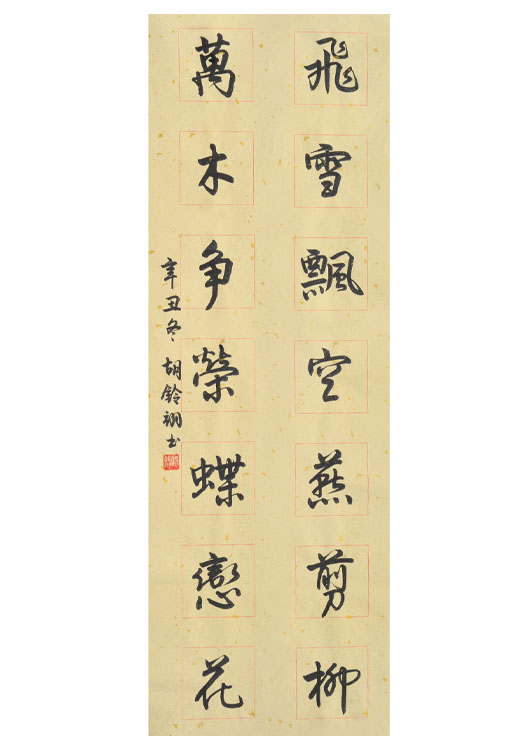 飛雪飄空燕剪柳
萬木争榮蝶戀花
辛丑冬胡鈴翊书